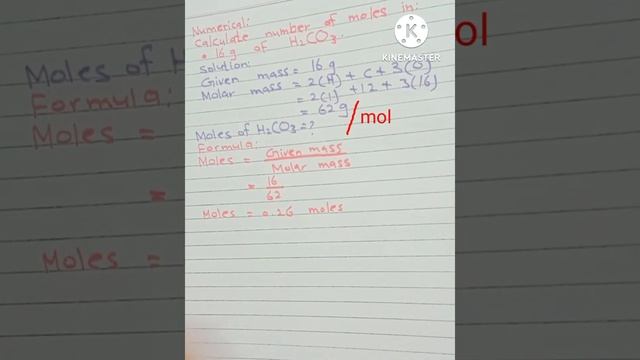 Numerical:
Calculate number of moles in:
• 16 g of H₂CO₃.
Solution:
Given mass = 16 g
Molar mass = 2(H) + C + 3(O)
= 2(1) + 12 + 3(16)
= 62 g /mol
Moles of H₂CO₃ = ?
Formula:
Moles = Given mass
Molar mass
= 16
62
Moles = 0.26 moles
KINEMASTER
Moles of H
Formula:
Moles =
=
Moles =
ol